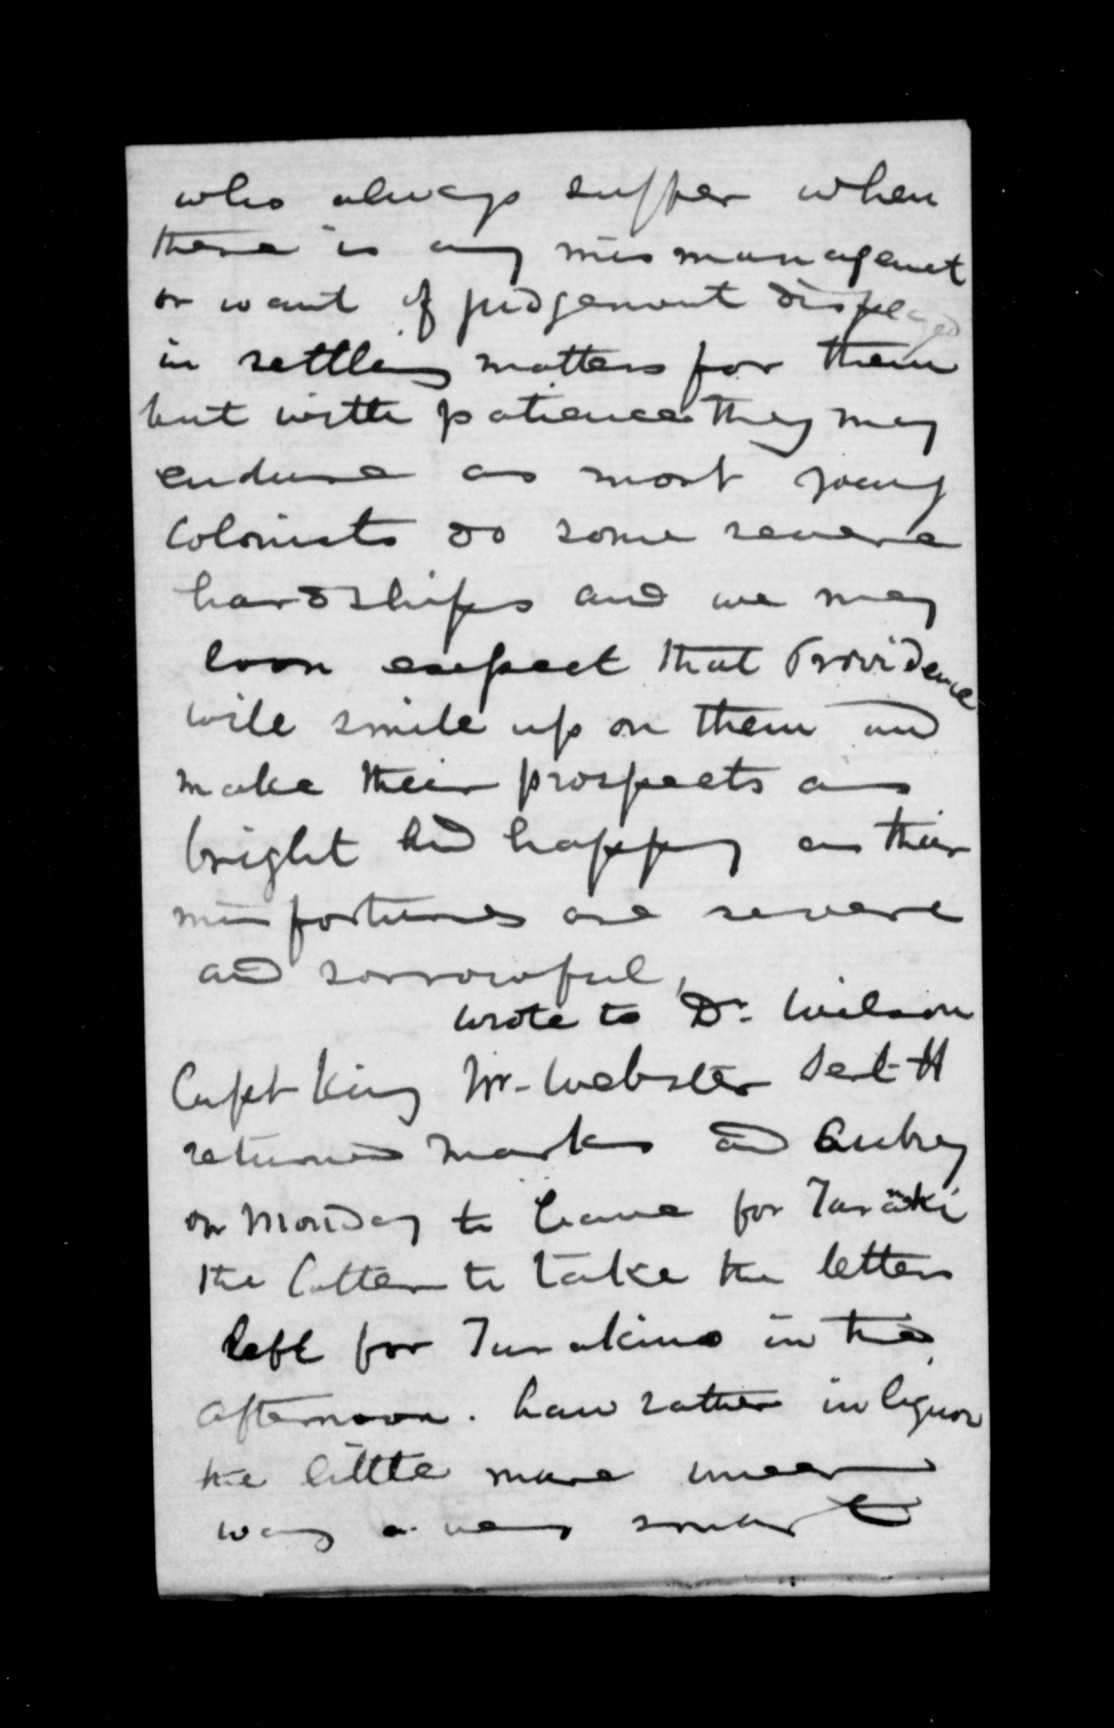 who always suffer when
there is any mismanagemet
or want of judgement displayed
in settling matters for them
but with patience they may
endure as most young
Colonists do some severe
hardships and we may
soon expect that Providence
will smile upon them and
make their prospects as
bright and happy as their
misfortunes are severe
and sorrowful,
wrote to Dr. Wilson
Capt King Mr. Webster Sert H
returned Marks and Aubrey
on Monday to leave for
the latter to take the letters
left for Turakina in the
afternoon. rather in liquor
the little mare
way a very smart